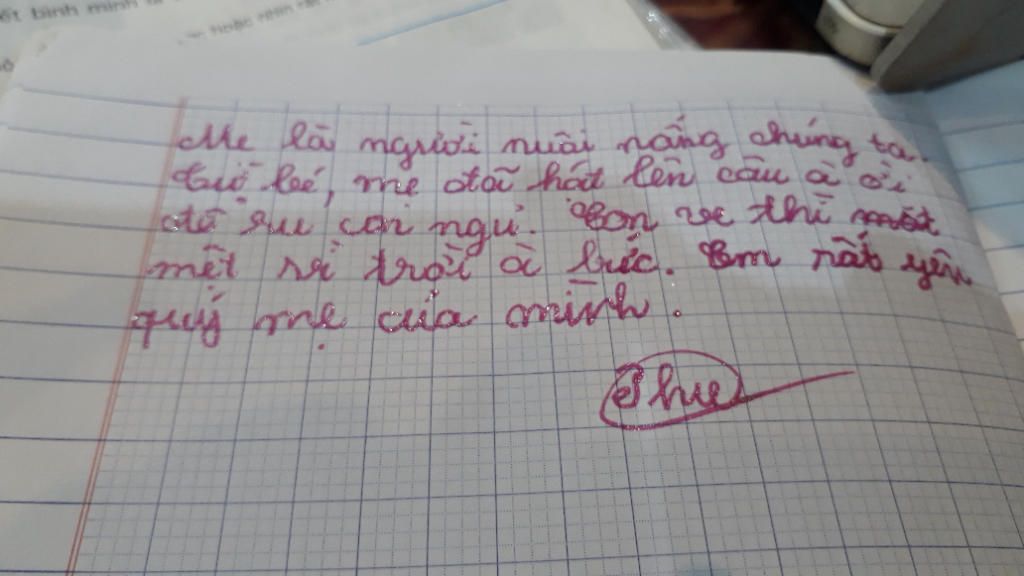 ết bình minh là
hoặc nhìn
Mẹ là người nuôi nấng chúng ta.
bé, mẹ đã hát lên câu à ơi
để ru con ngủ. Con ve thì mất
mệt vì trời à bức. Em rất yêu
quý mẹ của mình.
Thue